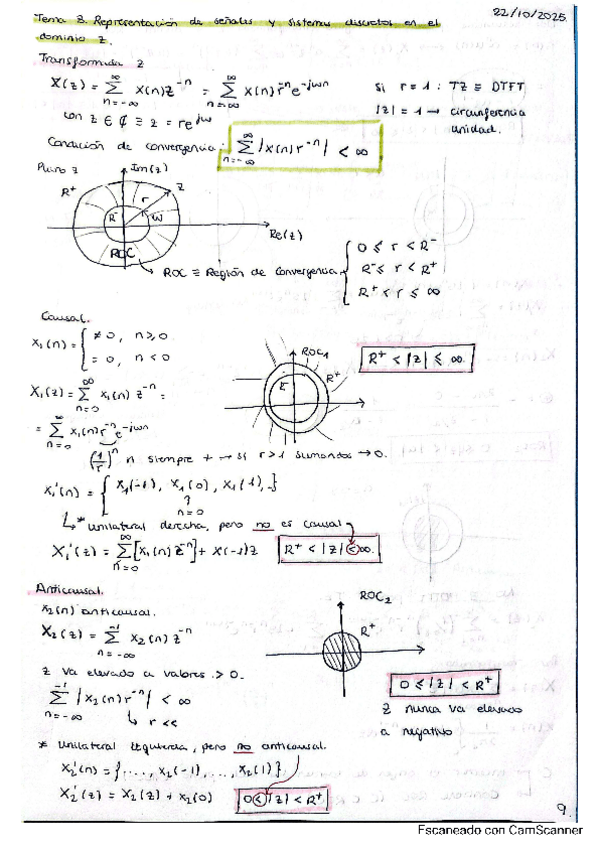 22/10/2025
Tema 3. Representación de señales y sistemas discretos en el
dominio z.
Transformada z
X(z) = ∑_{n=-∞}^{∞} x(n)z^{-n} = ∑_{n=-∞}^{∞} x(n)r^{-n}e^{-jωn}
si r = 1 : TZ ≡ DTFT
con z ∈ ₵ ≡ z = re^{jω}
|z| = 1 → circunferencia
unidad.
Condición de convergencia: ∑_{n=-∞}^{∞} |x(n)r^{-n}| < ∞
Plano z
Im(z)
R⁺
z
r
R⁻
ω
Re(z)
ROC
ROC ≡ Región de convergencia
0 ≤ r < R⁻
R⁻ ≤ r < R⁺
R⁺ < r ≤ ∞
Causal.
x₁(n) = { ≠ 0, n ≥ 0
= 0, n < 0
ROC₁
R⁺
R⁺ < |z| ≤ ∞.
X₁(z) = ∑_{n=0}^{∞} x₁(n) z^{-n} =
= ∑_{n=0}^{∞} x₁(n)r^{-n}e^{-jωn}
(1/r)^n n siempre + → si r > 1 sumandos → 0.
x₁'(n) = { x₁(-1), x₁(0), x₁(1), .}
n=0
* unilateral derecha, pero no es causal
X₁'(z) = ∑_{n=0}^{∞} [x₁(n) z^{-n}] + x(-1)z
R⁺ < |z| < ∞.
Anticausal.
x₂(n) anticausal.
ROC₂
R⁺
X₂(z) = ∑_{n=-∞}^{-1} x₂(n) z^{-n}
z va elevado a valores > 0.
0 ≤ |z| < R⁺
∑_{n=-∞}^{-1} |x₂(n)r^{-n}| < ∞
r <<
z nunca va elevado
a negativo
* Unilateral izquierda, pero no anticausal.
x₂'(n) = {..., x₂(-1), ..., x₂(1)}
X₂'(z) = X₂(z) + x₂(0)
0 < |z| < R⁺
9.
Escaneado con CamScanner